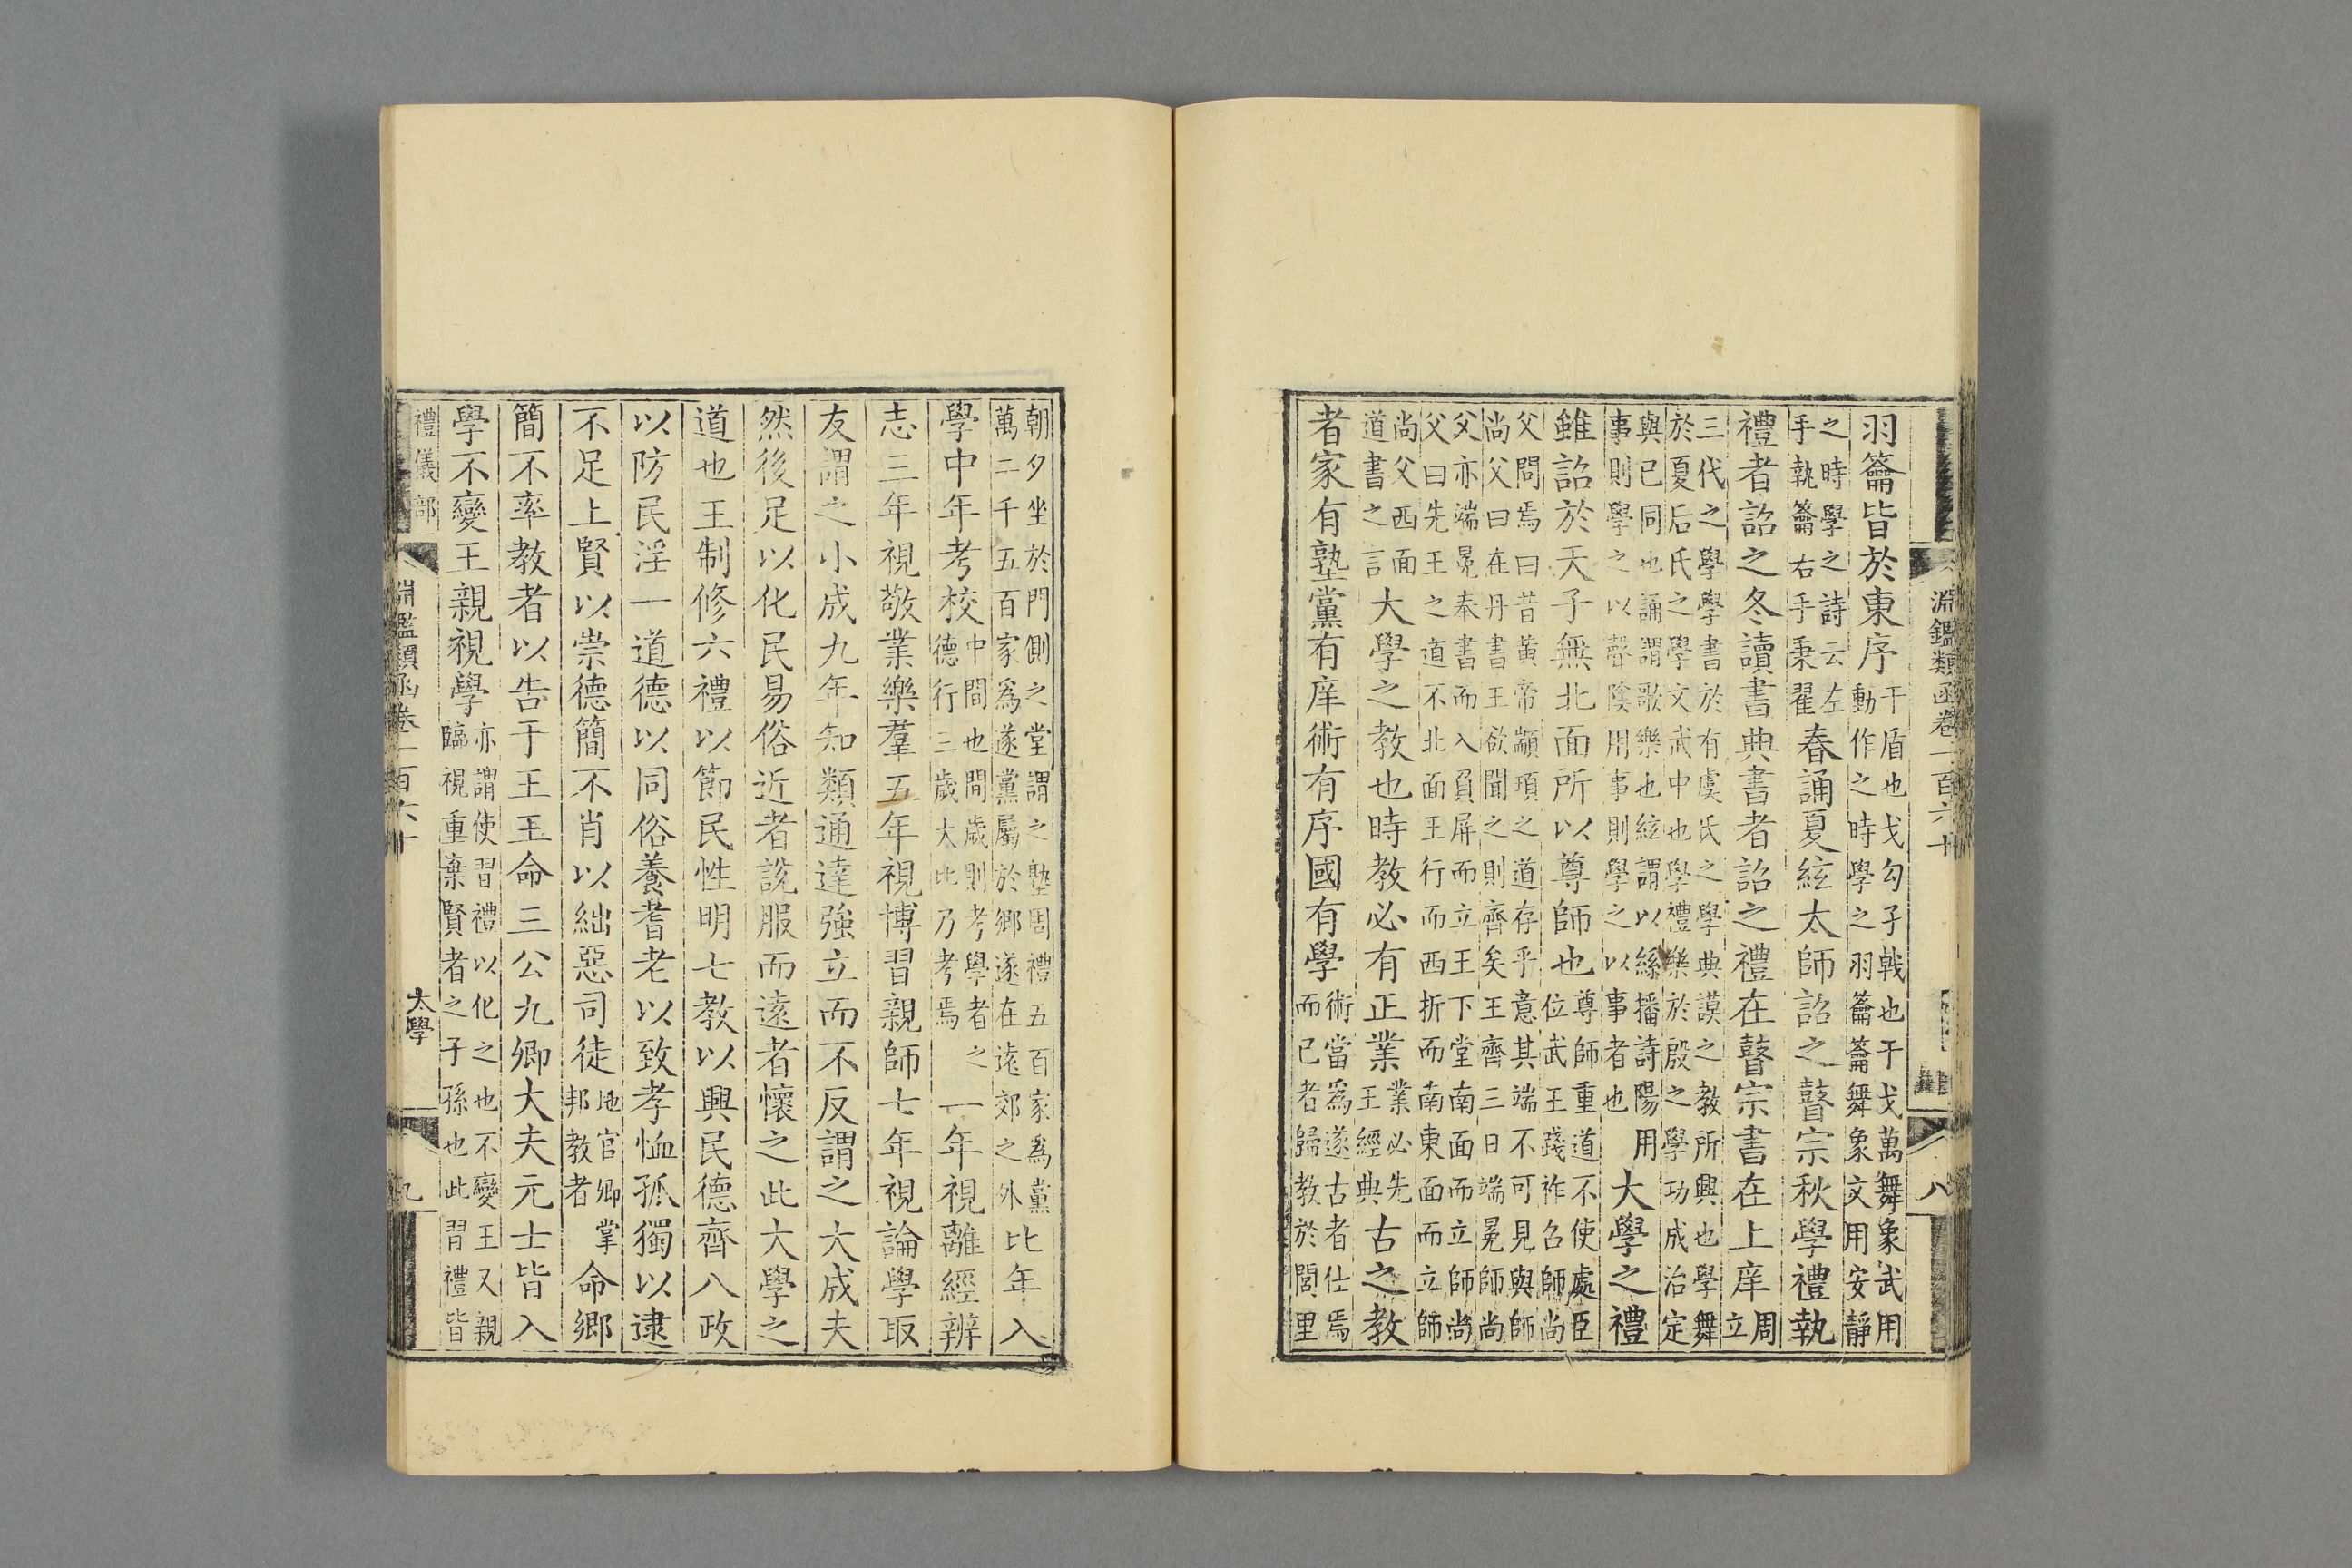 淵鑑類函卷一百六十
八
羽籥皆於東序
干盾也戈勾孑戟也干戈萬舞象武用
動作之時學之羽籥籥舞象文用安靜
之時學之詩云左
手執籥右手秉翟
春誦夏絃太師詔之瞽宗秋學禮執
禮者詔之冬讀書典書者詔之禮在瞽宗書在上庠
周
立
三代之學學書於有虞氏之學典謨之教所興也學舞
於夏后氏之學文武中也學禮樂於殷之學功成治定
與己同也誦謂歌樂也絃謂以絲播詩陽用
事則學之以聲陰用事則學之以事者也
大學之禮
雖詔於天子無北面所以尊師也
尊師重道不使處臣
位武王踐祚召師尚
父問焉曰昔黃帝顓頊之道存乎意其端不可見與師
尚父曰在丹書王欲聞之則齊矣王齊三日端冕師尚
父亦端冕奉書而入負屏而立王下堂南面而立師尚
父曰先王之道不北面王行而西折而南東面而立師
尚父西面
道書之言
大學之教也時教必有正業
業必先
王經典
古之教
者家有塾黨有庠術有序國有學
術當爲遂古者仕焉
而已者歸教於閭里
朝夕坐於門側之堂謂之塾周禮五百家爲黨
萬二千五百家爲遂黨屬於鄉遂在遠郊之外
比年入
學中年考校
中間也間歲則考學者之
德行三歲大比乃考焉
一年視離經辨
志三年視敬業樂羣五年視博習親師七年視論學取
友謂之小成九年知類通達強立而不反謂之大成夫
然後足以化民易俗近者說服而遠者懷之此大學之
道也王制修六禮以節民性明七教以興民德齊八政
以防民淫一道德以同俗養耆老以致孝恤孤獨以逮
不足上賢以崇德簡不肖以絀惡司徒
地官卿掌
邦教者
命鄉
簡不率教者以告于王王命三公九卿大夫元士皆入
學不變王親視學
亦謂使習禮以化之也不變王又親
臨視重棄賢者之子孫也此習禮皆
禮儀部
淵鑑類函卷一百六十
太學
九